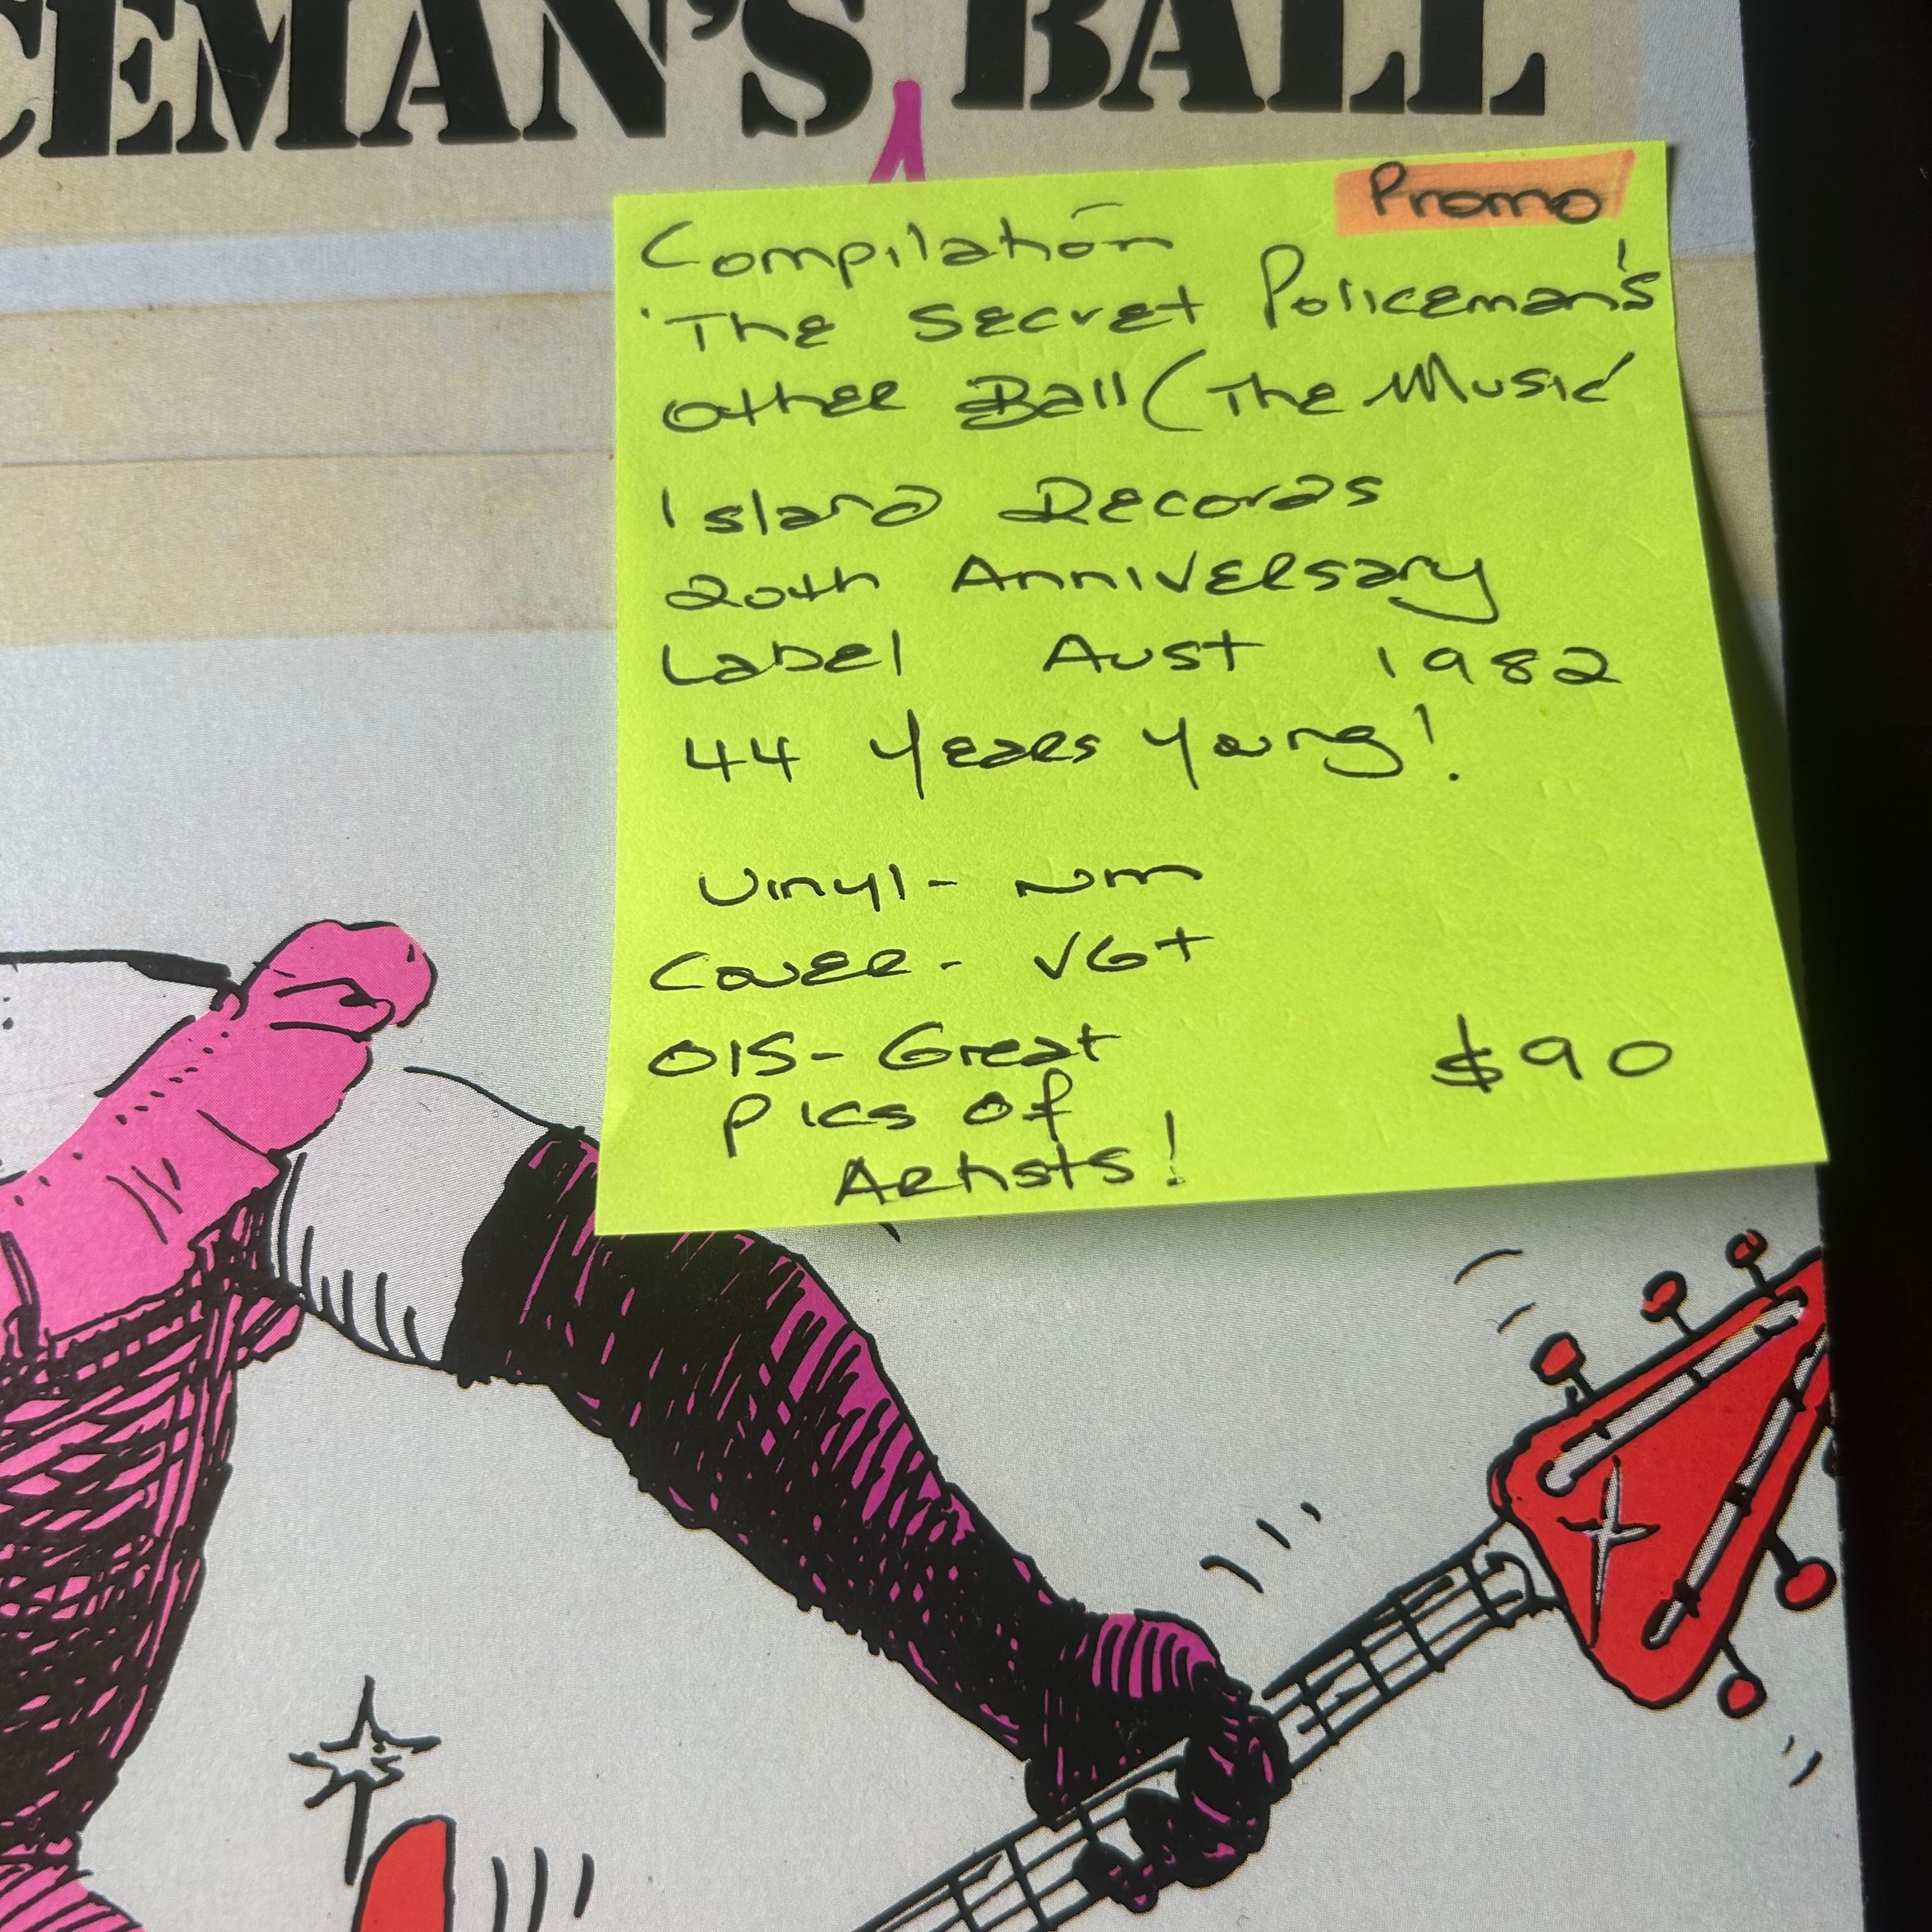 CEMAN'S BALL
Promo
Compilation
'The Secret Policeman's
Other Ball (The Music
Island Records
20th Anniversary
Label Aust 1982
44 Years Young!
Vinyl - NM
Cover - VG+
OIS - Great
Pics of
Artists!
$90